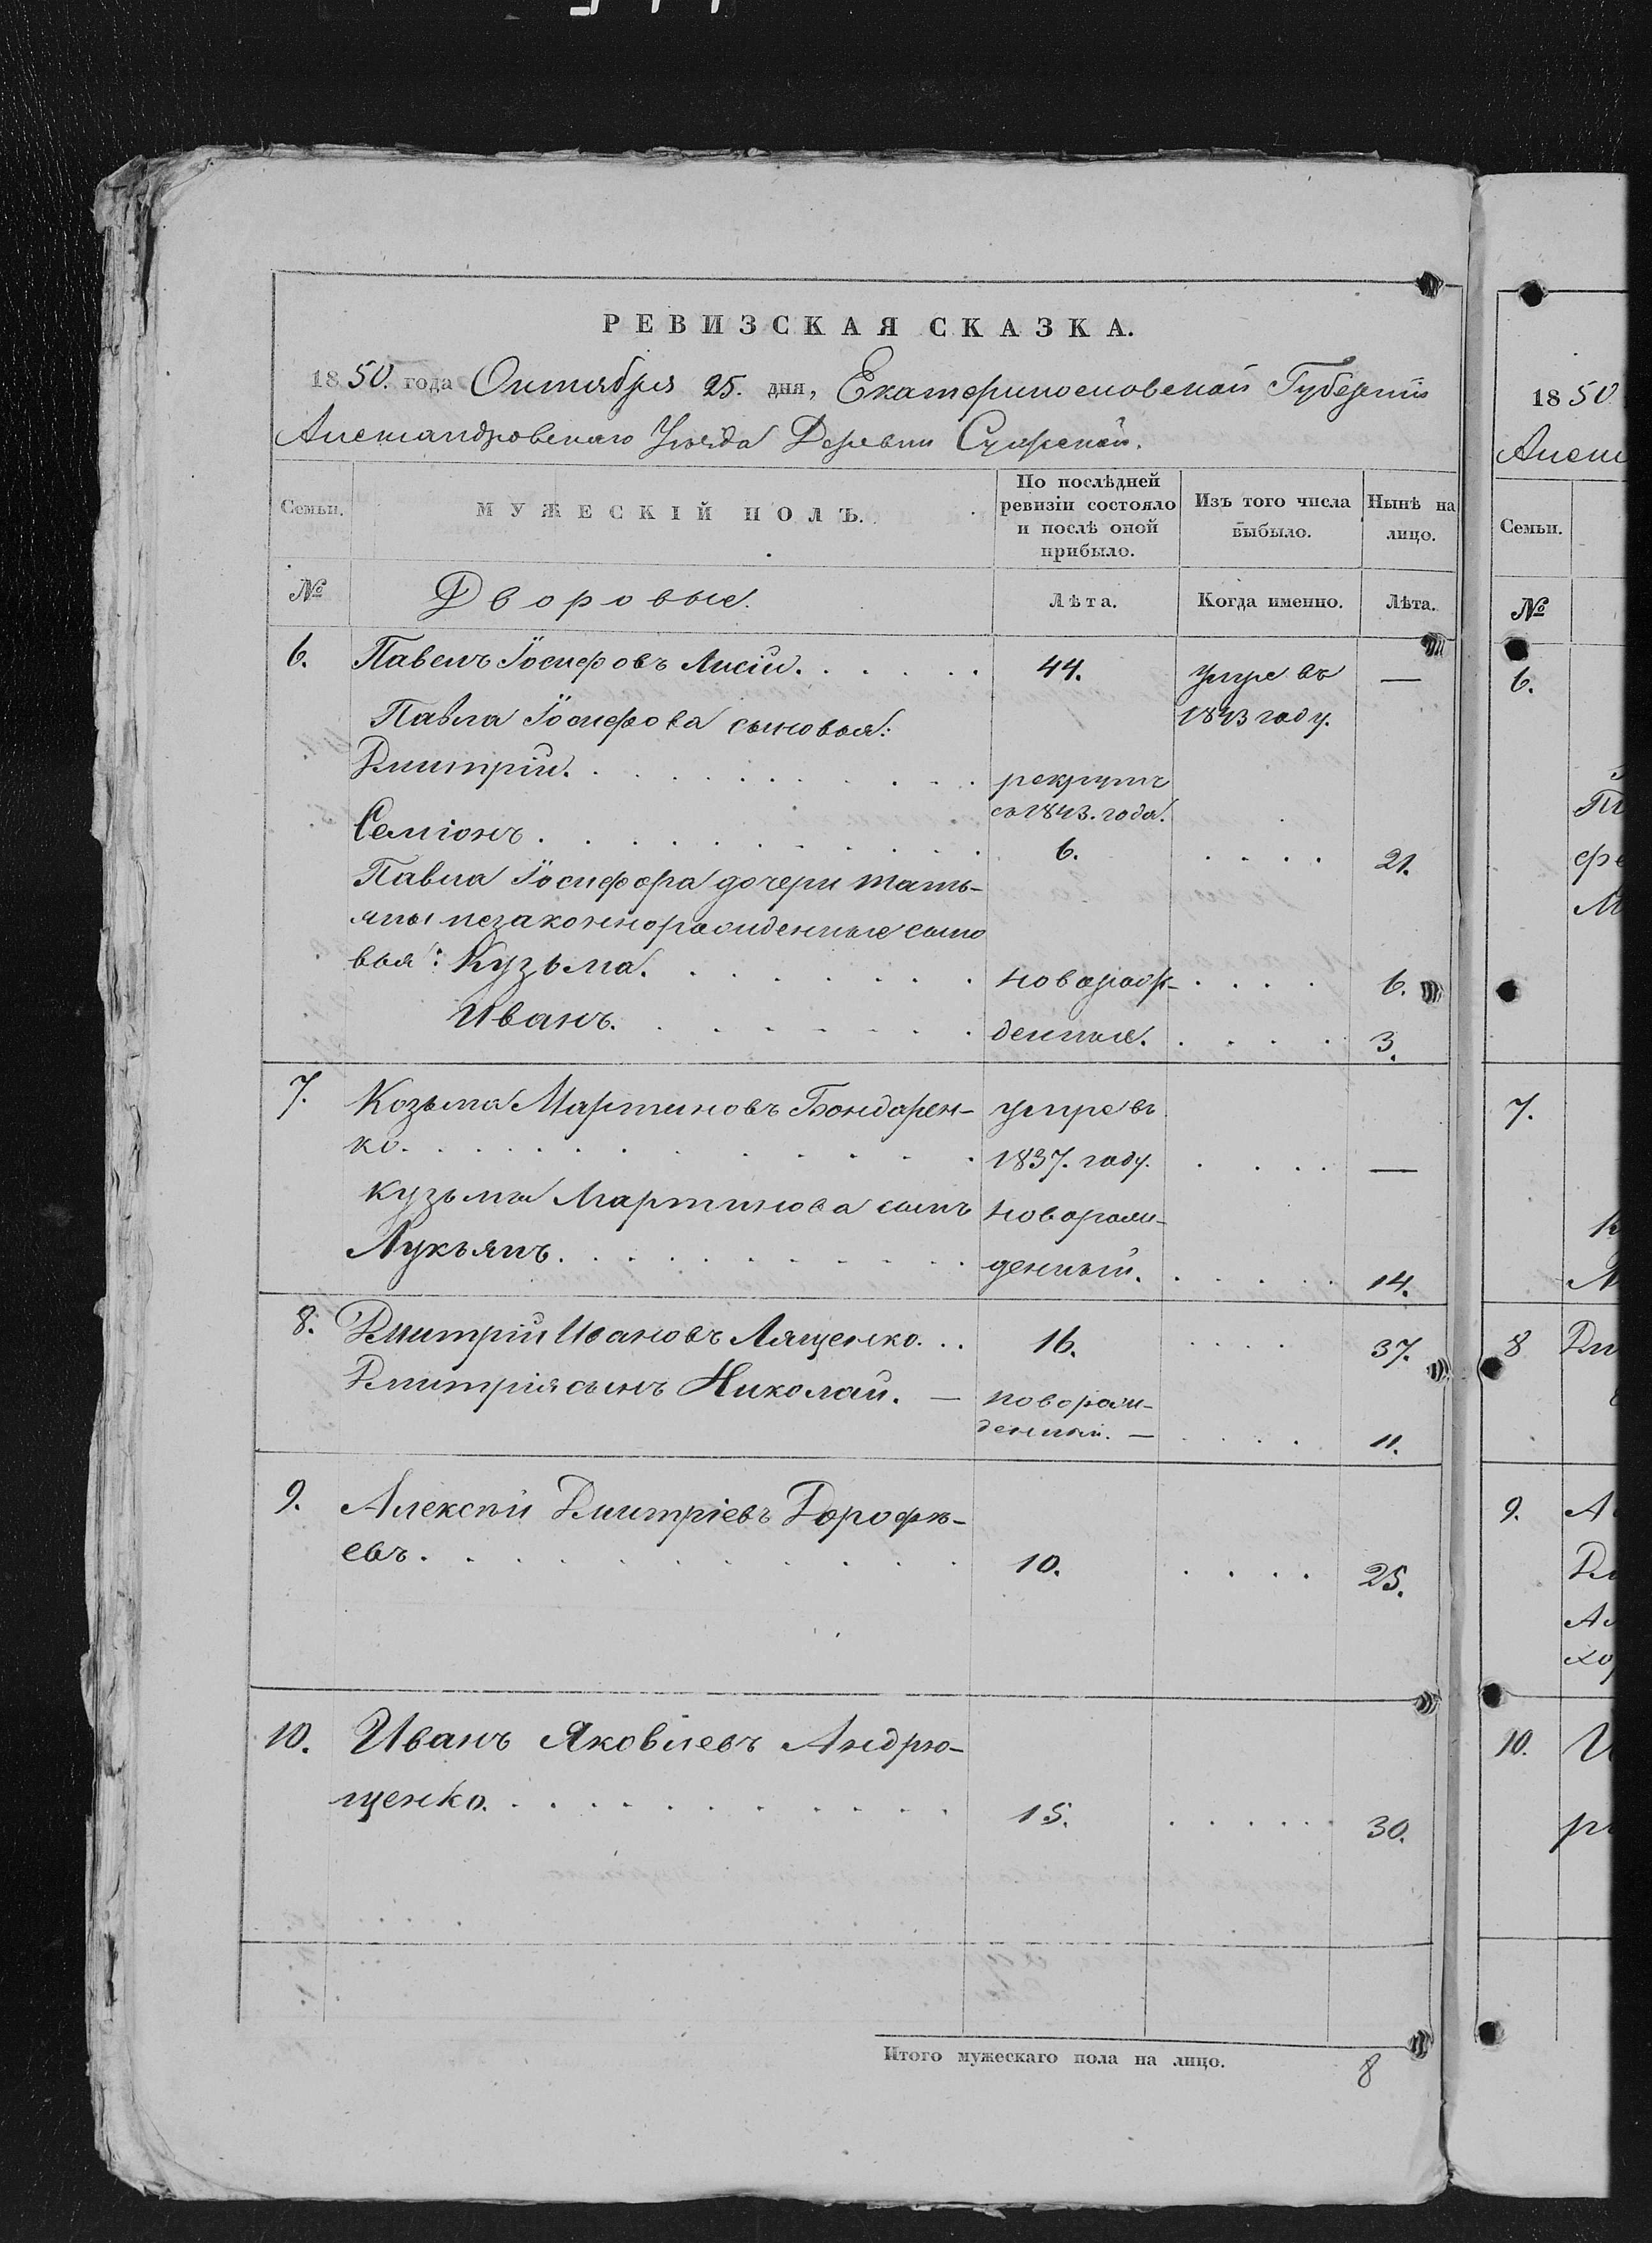 РЕВИЗСКАЯ СКАЗКА.
1850. года Октября 25. дня, Екатеринославской Губерніи
Александровскаго Уѣзда Деревни
Семьи.
МУЖЕСКІЙ ПОЛЪ.
По послѣдней
ревизіи состояло
и послѣ оной
прибыло.
Изъ того числа
выбыло.
Нынѣ на
лицо.
№ Дворовые. Лѣта. Когда именно. Лѣта.
6. Павелъ Іосифовъ Лисій. 44. умре въ —
Павла Іосифова сыновья: 1843 году.
Дмитрій. рекрутъ
съ 1843. года.
Семіонъ. 6. 21.
Павла Іосифова дочери Тать-
яны незаконнорожденные сыно
вья: Кузьма. новорож- 6.
Иванъ. денные. 3.
7. Козьма Мартиновъ Бондарен- умре въ
ко. 1837. году. —
Кузьмы Мартинова сынъ новорож-
Лукьянъ. денный. 14.
8. Дмитрій Ивановъ Лященко. 16. 37.
Дмитрія сынъ Николай. — новорож-
денный. — 11.
9. Алексѣй Дмитріевъ Дорофѣ-
евъ. 10. 25.
10. Иванъ Яковлевъ Андрю-
щенко. 15. 30.
Итого мужескаго пола на лицо. 8
1850
Семьи.
№
6.
7.
8
9.
10.